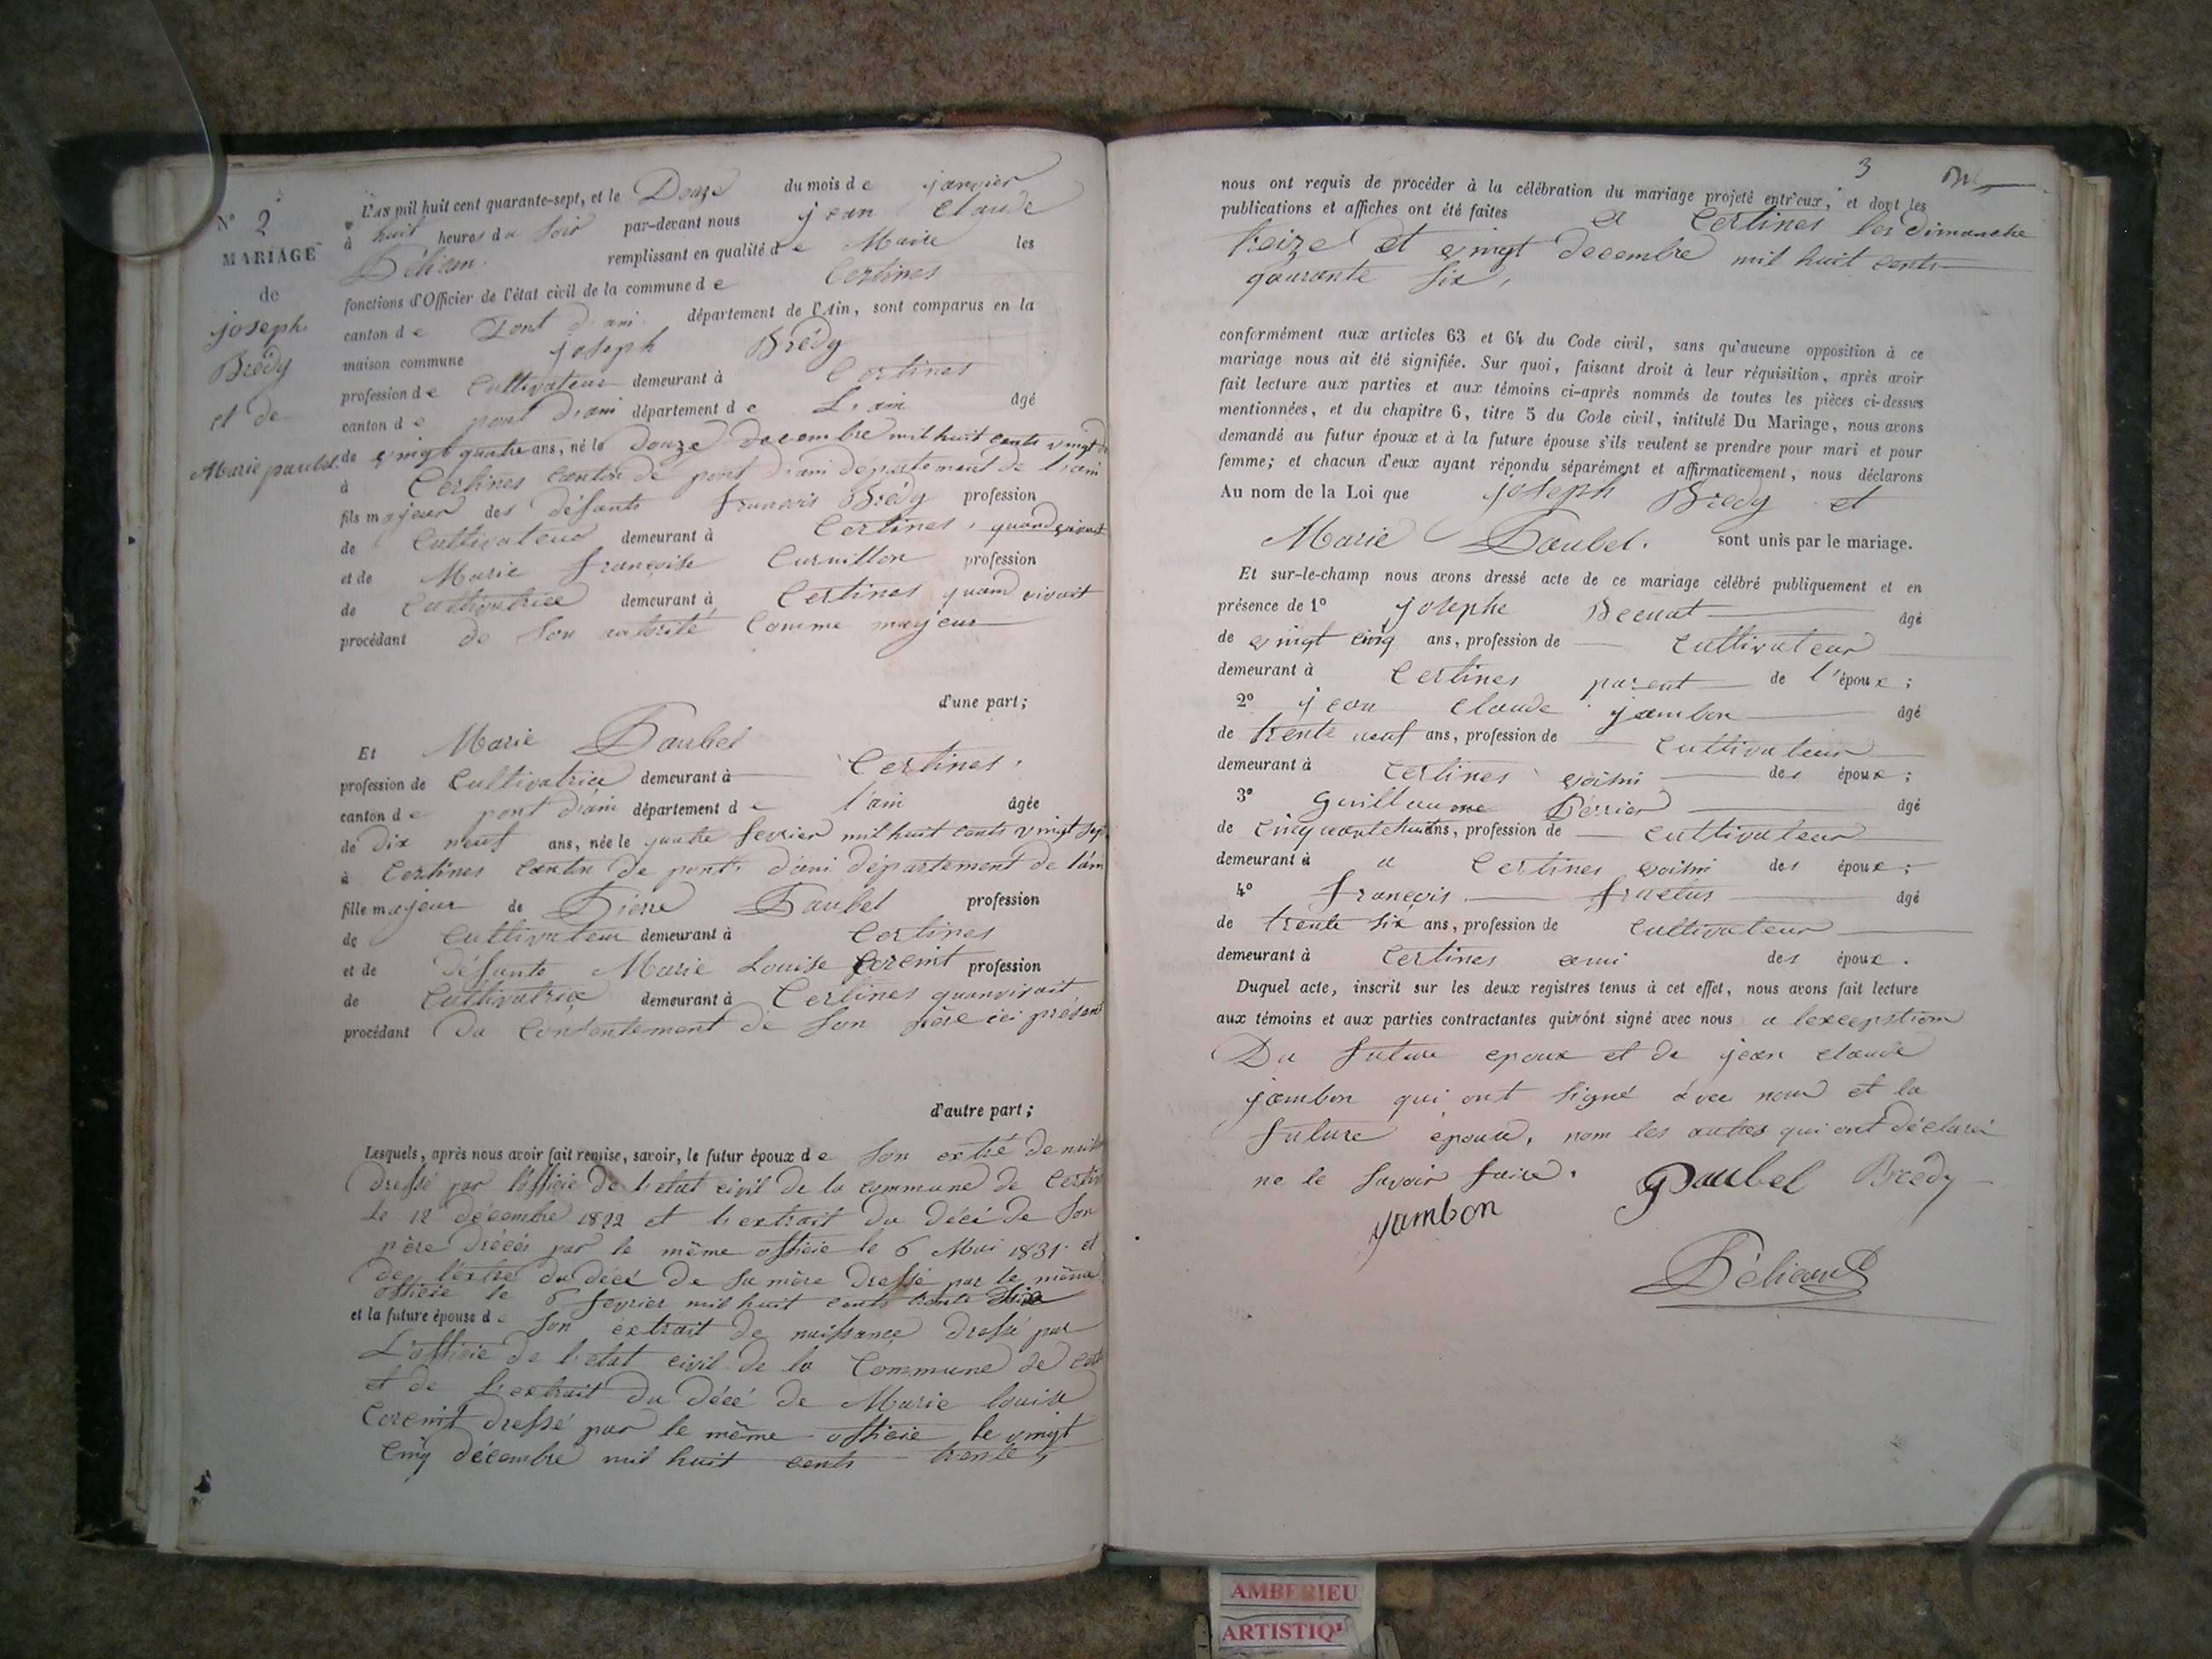 N° 2
MARIAGE
de
joseph
Brédy
et de
Marie paubel.
L'AN mil huit cent quarante-sept, et le Douze du mois de janvier
à huit heures du soir par-devant nous jean claude
remplissant en qualité de Maire les
fonctions d'Officier de l'état civil de la commune de Certines
canton de Pont d'ain département de l'Ain, sont comparus en la
maison commune joseph Brédy
profession de Cultivateur demeurant à Certines
canton de pont d'ain département de L'ain âgé
de vingt quatre ans, né le douze decembre mil huit cents vingt
à Certines canton de pont d'ain département de l'ain
fils majeur des défunts francois Brédy profession
de Cultivateur demeurant à Certines, quand vivait
et de Marie francoise Curnillon profession
de Cultivatrice demeurant à Certines quand vivait
procédant de son autorité comme majeur
d'une part;
Et Marie Paubel
profession de Cultivatrice demeurant à Certines,
canton de pont d'ain département de l'ain âgée
de dix neuf ans, née le quatre fevrier mil huit cents vingt sept
à Certines canton de pont d'ain département de l'ain
fille majeur de Piere Paubel profession
de Cultivateur demeurant à Certines
et de défunte Marie Louise profession
de Cultivatrice demeurant à Certines quanvivait
procédant du consentement de son père ici présent
d'autre part;
Lesquels, après nous avoir fait remise, savoir, le futur époux de son
dressé par l'officie de l'etat civil de la commune de
Le 12 décembre 1822 et l'extrait du décé de son
père par le même officie le 6 Mai 1831 et
du décé de sa mère dressé par le même
officie le 6 fevrier mil huit cents trente
et la future épouse de son extrait de naissance dressé par
L'officie de l'etat civil de la Commune de
et de L'extrait du décé de Marie louise
dressé par le même officie le vingt
cinq décembre mil huit cents trente
3
nous ont requis de procéder à la célébration du mariage projeté entr'eux, et dont les
publications et affiches ont été faites a Certines les dimanche
treize et vingt decembre mil huit cents
quarante six,
conformément aux articles 63 et 64 du Code civil, sans qu'aucune opposition à ce
mariage nous ait été signifiée. Sur quoi, faisant droit à leur réquisition, après avoir
fait lecture aux parties et aux témoins ci-après nommés de toutes les pièces ci-dessus
mentionnées, et du chapitre 6, titre 5 du Code civil, intitulé Du Mariage, nous avons
demandé au futur époux et à la future épouse s'ils veulent se prendre pour mari et pour
femme; et chacun d'eux ayant répondu séparément et affirmativement, nous déclarons
Au nom de la Loi que joseph Bredy et
Marie Paubel. sont unis par le mariage.
Et sur-le-champ nous avons dressé acte de ce mariage célébré publiquement et en
présence de 1° josephe âgé
de vingt cinq ans, profession de cultivateur
demeurant à Certines parent de l'époux;
2° jean claude jambon âgé
de trente neuf ans, profession de cultivateur
demeurant à Certines voisin des époux;
3° Guillaume Perrier âgé
de cinquantehuit ans, profession de cultivateur
demeurant à a Certines voisin des époux;
4° francois âgé
de trente six ans, profession de cultivateur
demeurant à Certines ami des époux.
Duquel acte, inscrit sur les deux registres tenus à cet effet, nous avons fait lecture
aux témoins et aux parties contractantes qui ont signé avec nous a lexcepstion
Du future epoux et de jean claude
jambon qui ont signé avec nous et la
future épouse, nom les autres qui ont déclaré
ne le savoir faire. Paubel Bredy
jambon
AMBERIEU
ARTISTIQ